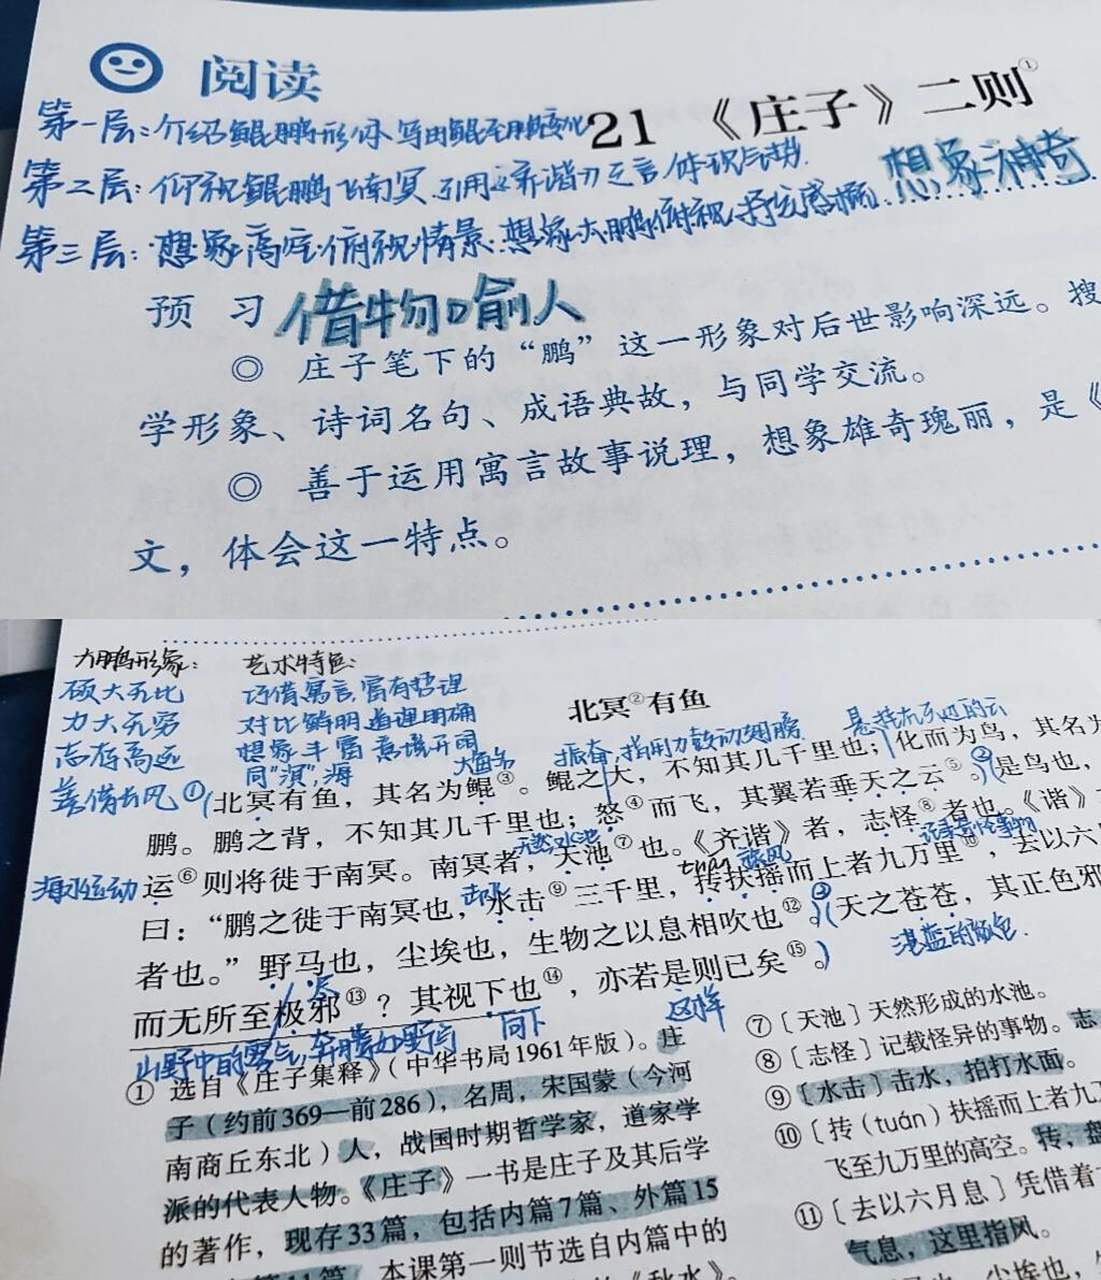 阅读
21 《庄子》二则①
第一层:介绍鲲鹏形体 写由鲲至鹏变化
第二层:仰视鲲鹏飞南冥,引用《齐谐》之言
想象神奇
第三层:想象高空俯视情景:想象大鹏俯视,抒发感慨
预 习
借物喻人
◎ 庄子笔下的“鹏”这一形象对后世影响深远。搜
学形象、诗词名句、成语典故,与同学交流。
◎ 善于运用寓言故事说理,想象雄奇瑰丽,是《
文,体会这一特点。
大鹏形象:
硕大无比
力大无穷
志存高远
善借长风
艺术特色:
巧借寓言,富有哲理
对比鲜明 道理明确
想象丰富 意境开阔
同“溟”,海
大鱼名
北冥②有鱼
振奋,指用力鼓动翅膀
悬挂在天边的云
①(北冥有鱼,其名为鲲③。鲲之大,不知其几千里也;化而为鸟,其名为
鹏。鹏之背,不知其几千里也;怒④而飞,其翼若垂天之云⑤。②(是鸟也,
天然水池
记载奇怪事物
海水运动
运⑥则将徙于南冥。南冥者,天池⑦也。《齐谐》者,志怪⑧者也。《谐》
击水
tuán 旋风
曰:“鹏之徙于南冥也,水击⑨三千里,抟扶摇而上者九万里⑩,去以六
者也。”野马也,尘埃也,生物之以息相吹也⑫。③(天之苍苍,其正色邪
湛蓝的颜色.
而无所至极邪⑬?其视下也⑭,亦若是则已矣⑮。)
尽
向下
这样
山野中的雾气,奔腾如野马
① 选自《庄子集释》(中华书局1961年版)。庄
子(约前369—前286),名周,宋国蒙(今河
南商丘东北)人,战国时期哲学家,道家学
派的代表人物。《庄子》一书是庄子及其后学
的著作,现存33篇,包括内篇7篇、外篇15
本课第一则节选自内篇中的
《秋水》。
⑦〔天池〕天然形成的水池。
⑧〔志怪〕记载怪异的事物。志
⑨〔水击〕击水,拍打水面。
⑩〔抟(tuán)扶摇而上者九
飞至九万里的高空。抟,盘
⑪〔去以六月息〕凭借着
气息,这里指风。
尘埃也,